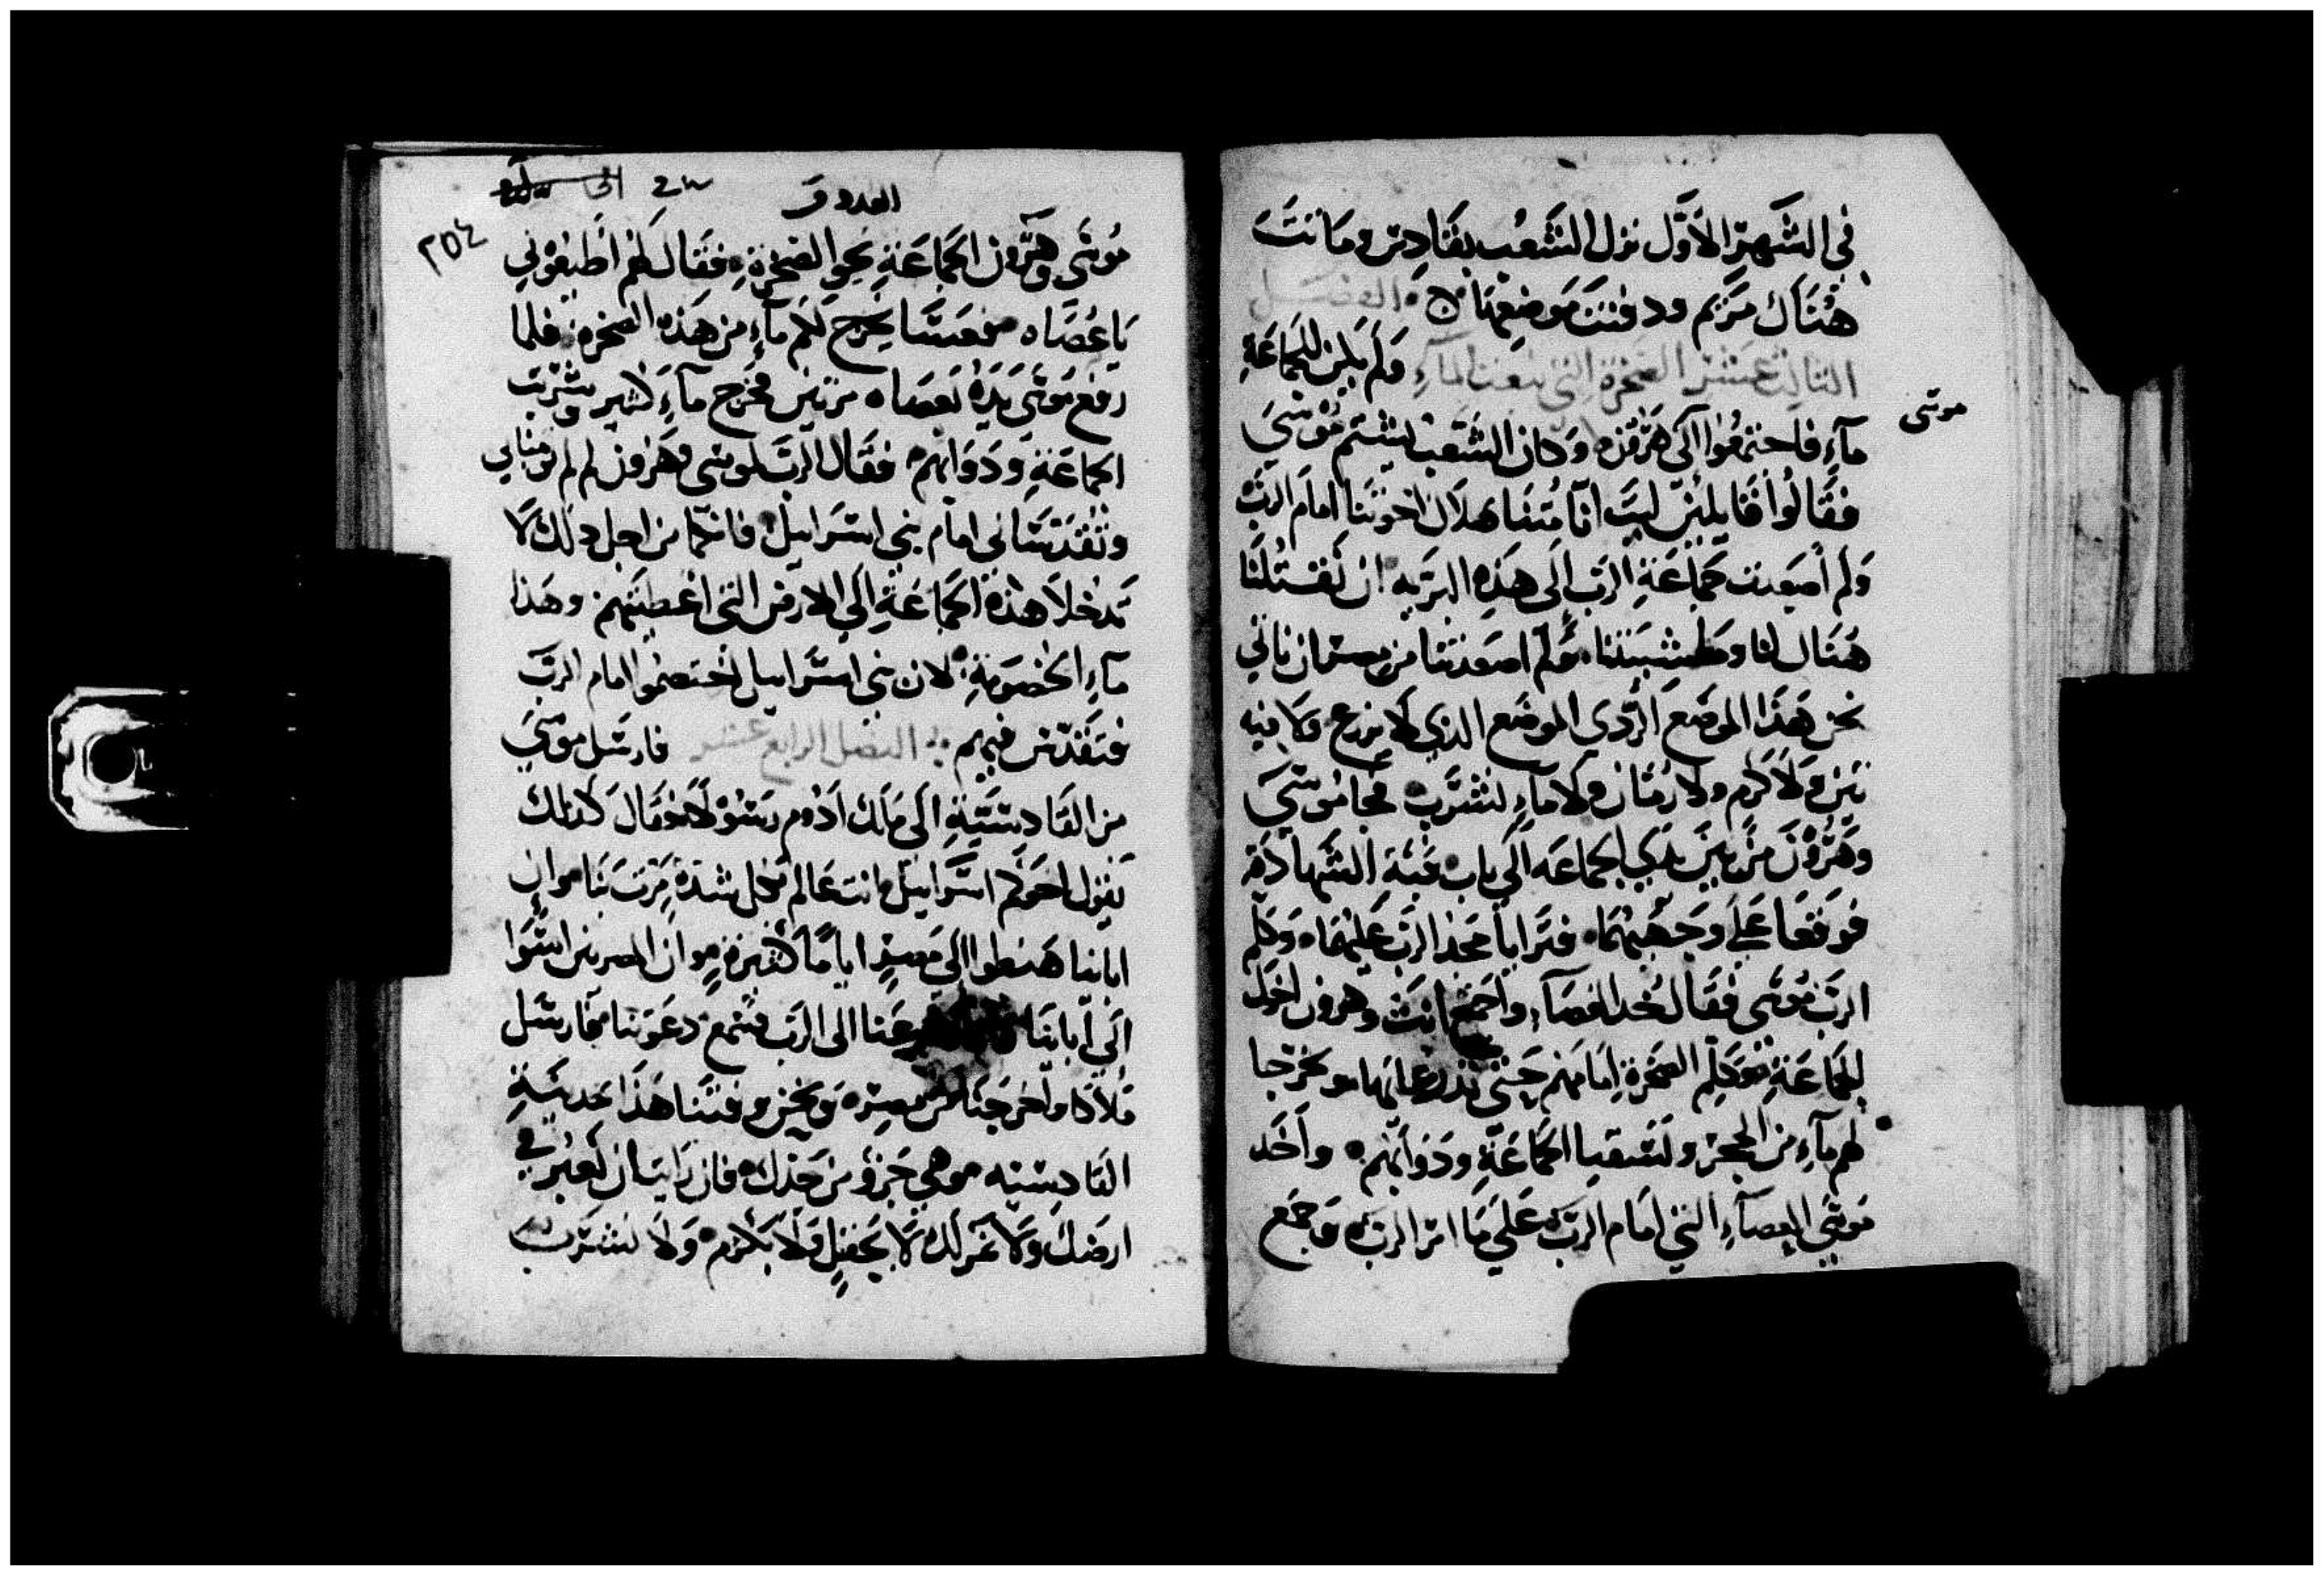 في الشهر الاول نزل الشعب بقادس وماتت
هناك مريم ودفنت موضعها الفصل
الثالث عشر الصخرة التي نبعت الماء ولم يكن للجماعة
موسى
ماء فاجتمعوا الى هرون وكان الشعب ليشتم موسي
فقالوا قايلين ليت انا متنا هلاك اخوتنا امام الرب
ولم اصعدت جماعة الرب الى هذه البريه ان تقتلنا
هنا لنا ومشيتنا ولم اصعدتنا من مصر ان ناتي
نحن هذا الموضع الردي الموضع الذي لا يزرع ولا فيه
تين ولا كرم ولا رمان ولا ماء لنشرب فجا موسي
وهرون من بين يدي الجماعه الي باب قبة الشهادة
فوقعا علي وجههما فترايا مجد الرب عليهما وكلم
الرب موسى فقال خد العصاء واجمع انت وهرون اخوك
الجماعة وكلم الصخرة امامهم حتي تدر مايها وتخرجا
لهم ماء من الحجر ولتسقيا الجماعة ودوابهم واخد
موسي العصاء التي امام الرب علي ما امر الرب وجمع
العدد ف
٢٥٤
موسى وهرون الجماعة نحو الصخرة فقال لهم اطيعوني
يا عصاه يخرج لكم ماء من هذه الصخرة فلما
رفع موسى يده بعصاه مرتين فخرج ماء كثير وشربت
الجماعة ودوابهم فقال الرب لموسى وهرون لم لم تومنا بي
وتقدساني امام بني اسراييل فانكما من اجل ذلك لا
تدخلا هذه الجماعة الي الارض التي اعطيتهم وهذا
ماء الخصومة لان بني اسراييل اختصموا امام الرب
فتقدس فيهم الفصل الرابع عشر فارسل موسي
من القادسية الى ملك ادوم رسولا وقال كذلك
يقول اخوكم اسراييل انت عالم بكل شدة مرت بنا وان
اباينا هبطوا الى مصر اياما كثيرة وان المصريين اسوا
الي اباينا الى الرب فسمع دعوتنا فارسل
ملاكا واخرجنا من مصر ونحن وقتنا هذا بمدينة
القادسيه وهي جزؤ من حدك فان رايت ان نعبر في
ارضك ولا نمر لك لا بحقل ولا بكرم ولا نشرب